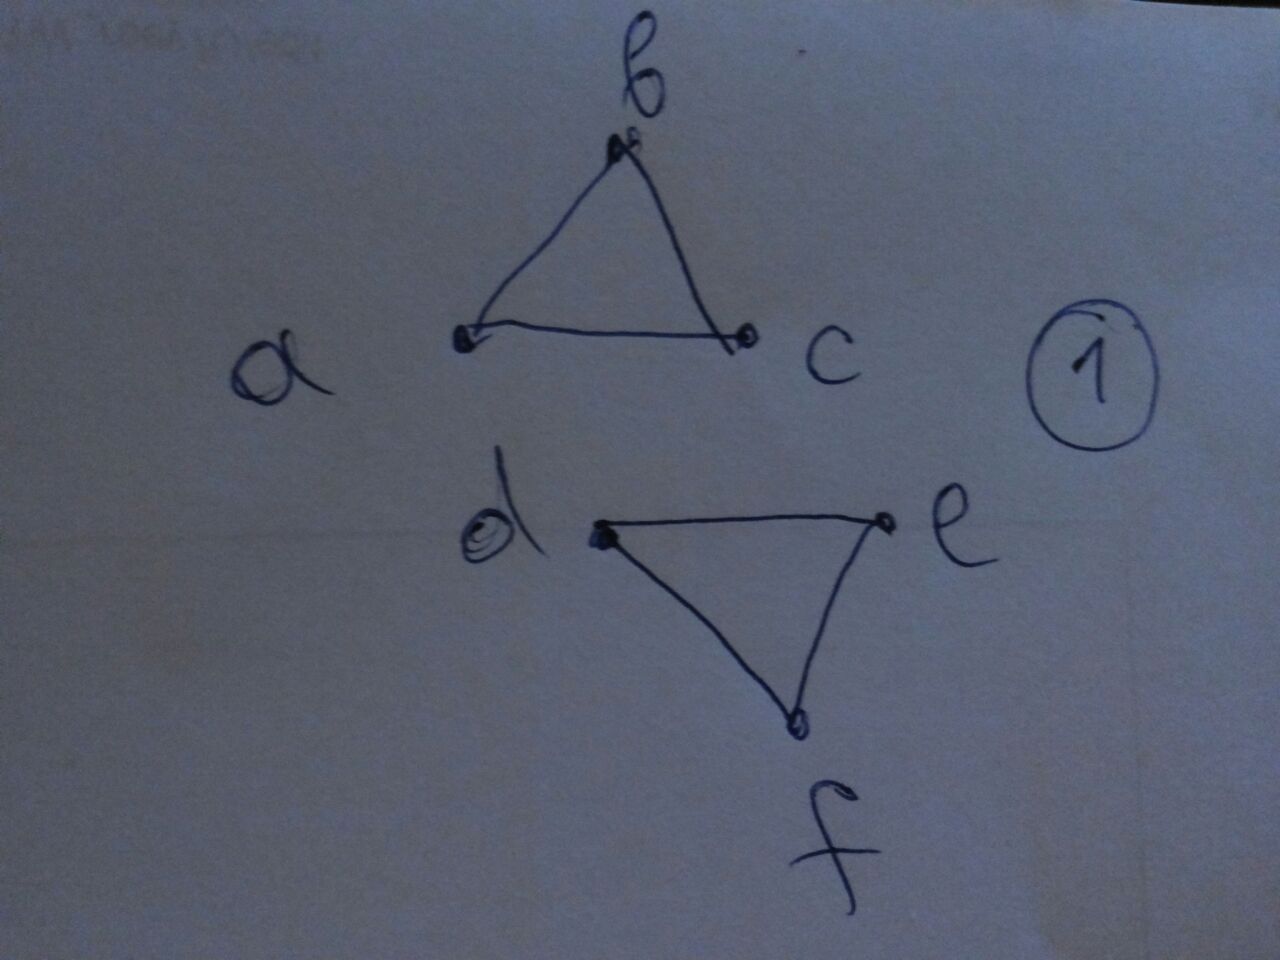 b
a
c
1
d
e
f